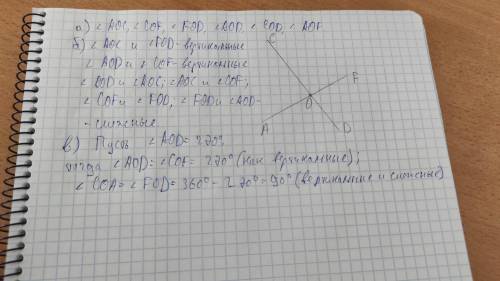 а) ∠AOC, ∠COF, ∠FOD, ∠AOD, ∠COD, ∠AOF
б) ∠AOC и ∠FOD - вертикальные
∠AOD и ∠COF - вертикальные
∠AOD и ∠AOC; ∠AOC и ∠COF;
∠COF и ∠FOD; ∠FOD и ∠AOD -
- смежные.
в) Пусть ∠AOD = 270°
тогда ∠AOD = ∠COF = 270° (как вертикальные);
∠COA = ∠FOD = 360° - 270° = 90° (вертикальные и смежные)
C
F
O
A
D